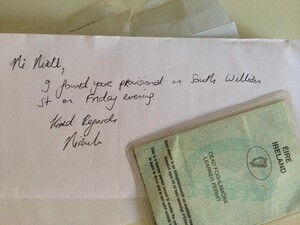 Hi Niall,
I found your provisional on South William
St on Friday evening.
Kind Regards
ÉIRE
IRELAND
CEAD FOGHLAMORA
LEARNER PERMIT